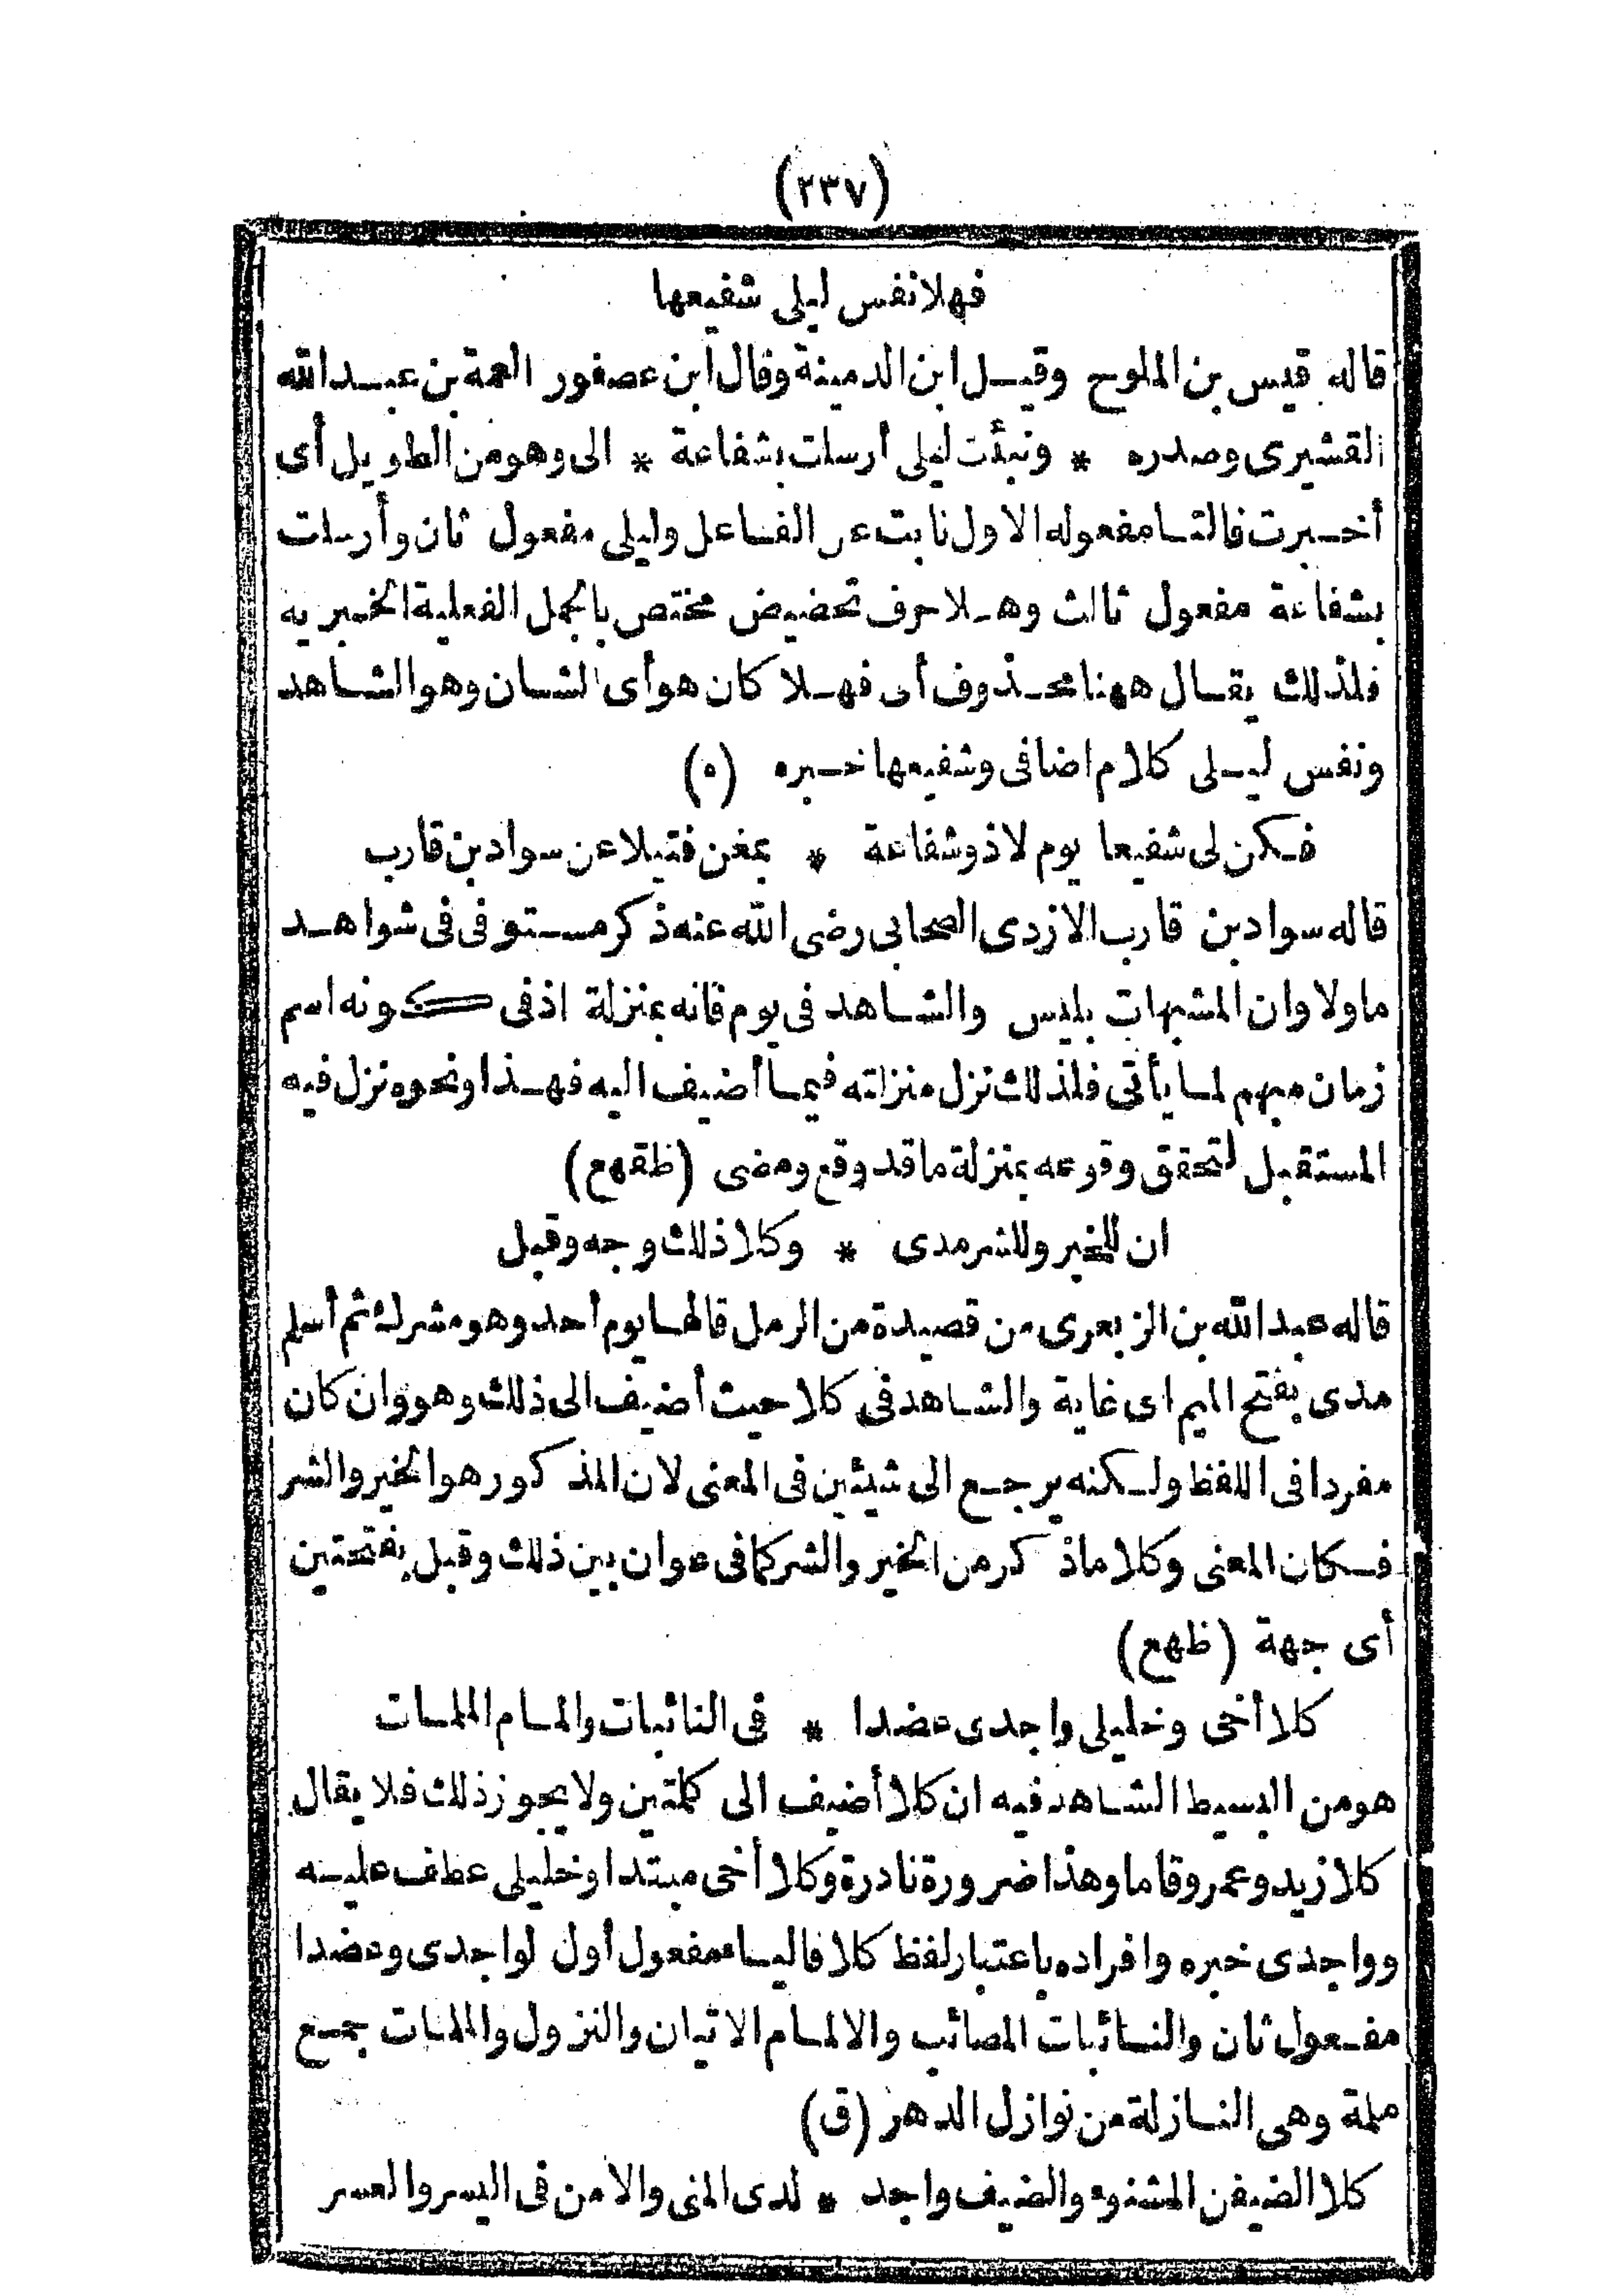 (٢٣٧)
فهلا نفس ليلى شفيعها
قاله قيس بن الملوح وقيل ابن الدمينة وقال ابن عصفور الصمة بن عبد الله
القشيرى وصدره * ونبئت ليلى أرسلت بشفاعة * الى وهو من الطويل أى
أخبرت فالتا مفعوله الاول نابت عن الفاعل وليلى مفعول ثان وأرسلت
بشفاعة مفعول ثالث وهلا حرف تحضيض مختص بالجمل الفعلية الخبريه
فلذلك يقال ههنا محذوف أى فهلا كان هو أى الشان وهو الشاهد
ونفس ليلى كلام اضافى وشفيعها خبره (ه)
فكن لى شفيعا يوم لا ذو شفاعة * بمغن فتيلا عن سواد بن قارب
قاله سواد بن قارب الازدى الصحابى رضى الله عنه ذكر مستوفى فى شواهد
ما ولا وان المشبهات بليس والشاهد فى يوم فانه بمنزلة اذ فى كونه اسم
زمان مبهم لما يأتى فلذلك نزل منزلته فيما أضيف اليه فهذا ونحوه نزل فيه
المستقبل لتحقق وقوعه بمنزلة ما قد وقع ومضى (ظقهع)
ان للخير وللشر مدى * وكلا ذلك وجه وقبل
قاله عبد الله بن الزبعرى من قصيدة من الرمل قالها يوم أحد وهو مشرك ثم أسلم
مدى بفتح الميم اى غاية والشاهد فى كلا حيث أضيف الى ذلك وهو وان كان
مفردا فى اللفظ ولكنه يرجع الى شيئين فى المعنى لان المذكور هو الخير والشر
فكان المعنى وكلا ما ذكر من الخير والشر كما فى عوان بين ذلك وقبل بفتحتين
أى جهة (ظهع)
كلا أخى وخليلى واجدى عضدا * فى النائبات والمام الملمات
هو من البسيط الشاهد فيه ان كلا أضيف الى كلمتين ولا يجوز ذلك فلا يقال
كلا زيد وعمرو قاما وهذا ضرورة نادرة وكلا أخى مبتدا وخليلى عطف عليه
وواجدى خبره وافراده باعتبار لفظ كلا فالياء مفعول أول لواجدى وعضدا
مفعول ثان والنائبات المصائب والالمام الاتيان والنزول والملمات جمع
ملمة وهى النازلة من نوازل الدهر (ق)
كلا الضيفن المشنوء والضيف واجد * لدى المنى والامن فى اليسر والعسر